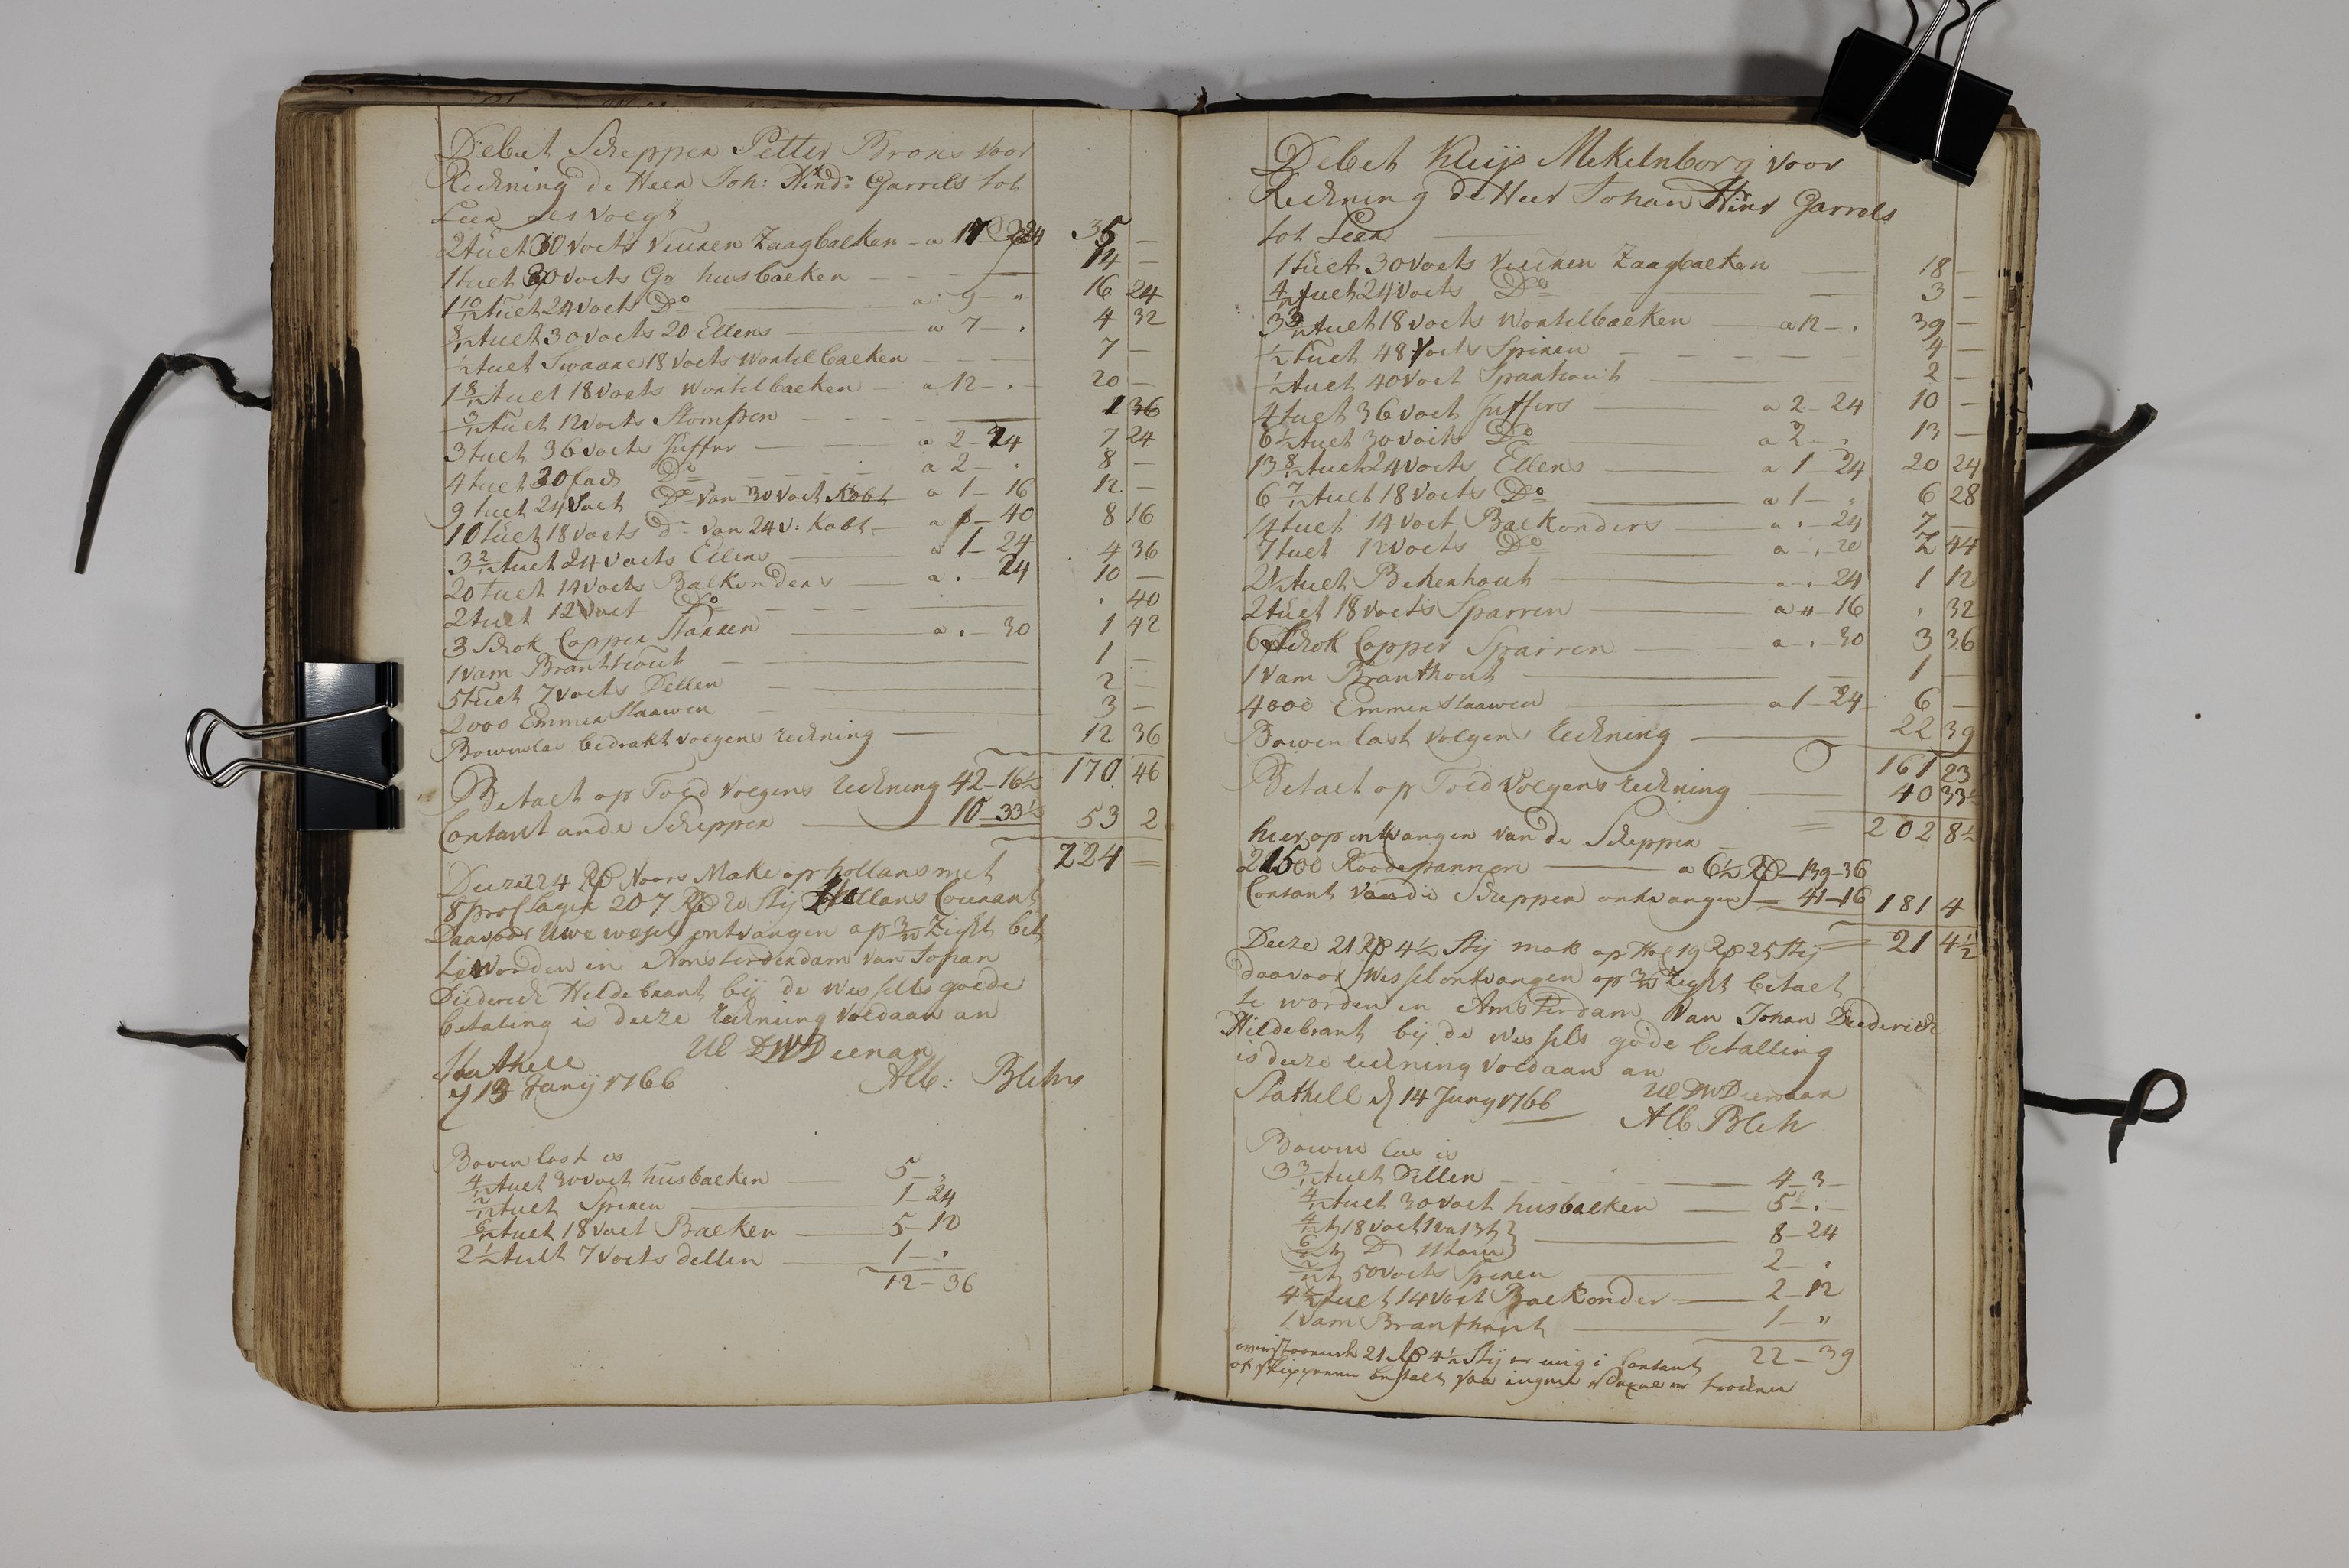 Debet Scheppen Petter Brons voor
Rechning de Heer Joh: Hind: Garrels tot
Leer als volgt
2 tuet 30 voets vuuren Zaagbalken - a 17 - 24 35 -
1 tuet 30 voets Gr: husbalken 14 -
1 10/12 tuet 24 voets Do a 9 - " 16 24
8/12 tuet 30 voets 20 Ellens a 7 - . 4 32
1/2 tuet Swaare 18 voets wortelbalken 7 -
1 8/12 tuet 18 voets wortelbalken a 12 - . 20 -
3/12 tuet 12 voets Stompen 1 36
3 tuet 36 voets Juffer a 2 - 24 7 24
4 tuet 30 Do a 2 - . 8 -
9 tuet 24 voet Do van 30 voet Kobt a 1 - 16 12 -
10 tuet 18 voets do van 24 v: Kobt a - 40 8 16
3 2/12 tuet 24 voets Ellens a 1 - 24 4 36
20 tuet 14 voets Balkonders a . - 24 10 -
2 tuet 12 voet Do . 40
3 Schok Copper Staaken a . - 30 1 42
1 vam Branthout 1 -
5 tuet 7 voets Dellen 2 -
2000 Emmer Staawen 3 -
Bowenlas bedrakt volgens rechning 12 36
170 46
Betaelt op Toed volgens rechning 42 - 16 1/2
Contant ande Scheppen 10 - 33 1/2 53 2
224 =
Deeze 224 Rd Noors Make op hollans met
8 pro lagie 207 Rd 20 Stij Hollans Courant
Daavoor Uwe wesel ontvangen op Zight bet
te worden in Amsterdendam van Johan
Diederich Hildebrant bij de wessells goede
betaling is deeze rechning voldaan an
Stathell UE DWDeenar
d 13 Junij 1766 Alb: Blehr
Boven last is
4/12 tuet 30 voet husbalken 5 - ,
2/12 tuet Spiren 1 - 24
6/12 tuet 18 voet Balken 5 - 12
2 1/2 tuelt 7 voets dellen 1 - .
12 - 36
Debet Kleijs Mekelnborg voor
Rechning de Heer Johan Hind Garrels
tot Leer
1 tuet 30 voets vuuren Zaagbalken 18 -
4/12 tuet 24 voets Do 3 -
3 3/12 tuet 18 voets wortelbalken a 12 - . 39 -
1/2 tuet 48 voets Spiren 4 -
1/2 tuet 40 voet Spaarhout 2 -
4 tuet 36 voet Juffers a 2 - 24 10 -
6 1/2 tuet 30 voets Do a 2 - . 13 -
13 8/12 tuet 24 voets Ellens a 1 - 24 20 24
6 7/12 tuet 18 voets Do a 1 - , 6 28
14 tuet 14 voet Balkonders a . - 24 7 -
7 tuet 12 voets Do a . - 20 2 44
2 1/2 tuet Bekenhout a . - 24 1 12
2 tuet 18 voets Sparren a " - 16 . 32
6 Schok Copper Sparren a . - 30 3 36
1 vam Branthout 1 -
4000 Emmer Staawen a 1 - 24 6 -
Bowen last volgens rechning 22 39
161 23
Betaelt op Toed volgens rechning 40 33 1/2
202 8 1/2
hier op entvangen van de Scheppen
21500 Roodepannen a 6 1/2 Rd - 139 - 36
Contant van die Scheppen ontvangen 41 - 16 181 4
21 4 1/2
Deeze 21 Rd 4 1/2 Stij mak op Hol 19 Rd 25 Stij
daavoor wessel ontvangen op Zight betaelt
te worden in Amsterdam van Johan Diederich
Hildebrant bij de wessels gode betalling
is deeze rechning voldaan an
Stathell d 14 Juny 1766 UE DWDeenaar
Alb Blehr
Bowen las is
3 3/12 tuelt Dellen 4 - 3 -
4/12 tuet 30 voet husbalken 5 - . -
4/12 t 18 voet
6/12 t D 8 - 24
2/12 t 50 voets Spiren 2 - .
4 1/2 tuet 14 voet Balkonder 2 - 12
1 vam Branthout 1 - "
22 - 39
21 Rd 4 1/2 Stij er mig i Contant
af Skipperen betalt